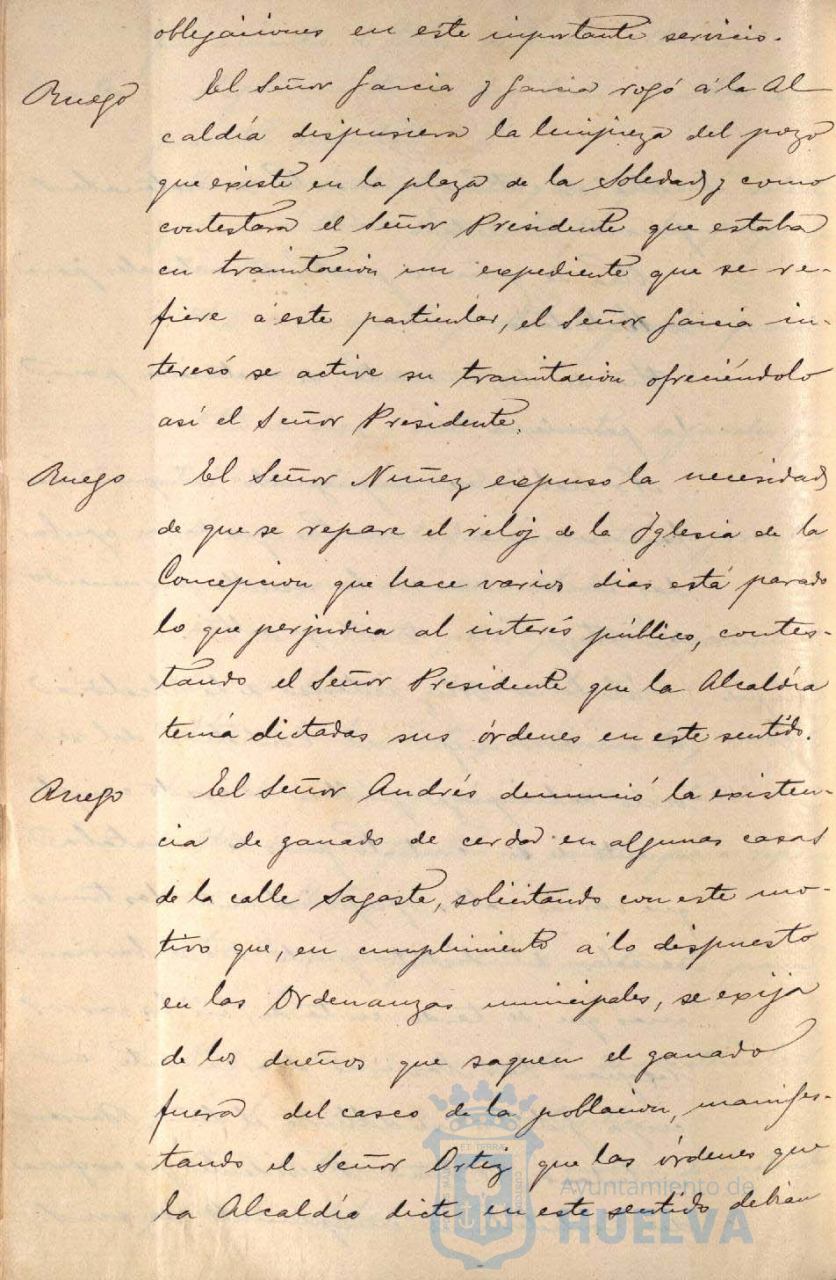 obligaciones en este importante servicio.
Ruego
El Señor Garcia y Garcia rogó á la Al
caldía dispusiera la limpieza del pozo
que existe en la plaza de la Soledad, y como
contestara el Señor Presidente que estaba
en tramitacion un expediente que se re-
fiere á este particular, el Señor Garcia in-
teresó se active su tramitacion ofreciéndolo
así el Señor Presidente.
Ruego
El Señor Nuñez expuso la necesidad
de que se repare el reloj de la Yglesia de la
Concepcion que hace varios dias está parado
lo que perjudica al interés público, contes-
tando el Señor Presidente que la Alcaldía
tenía dictadas sus órdenes en este sentido.
Ruego
El Señor Andrés denunció la existen-
cia de ganado de cerda en algunas casas
de la calle Sagasta, solicitando con este mo-
tivo que, en cumplimiento á lo dispuesto
en las Ordenanzas municipales, se exija
de los dueños que saquen el ganado
fuera del casco de la poblacion, manifes-
tando el Señor Ortiz que las órdenes que
la Alcaldía dicte en este sentido debian
Ayuntamiento de
HUELVA